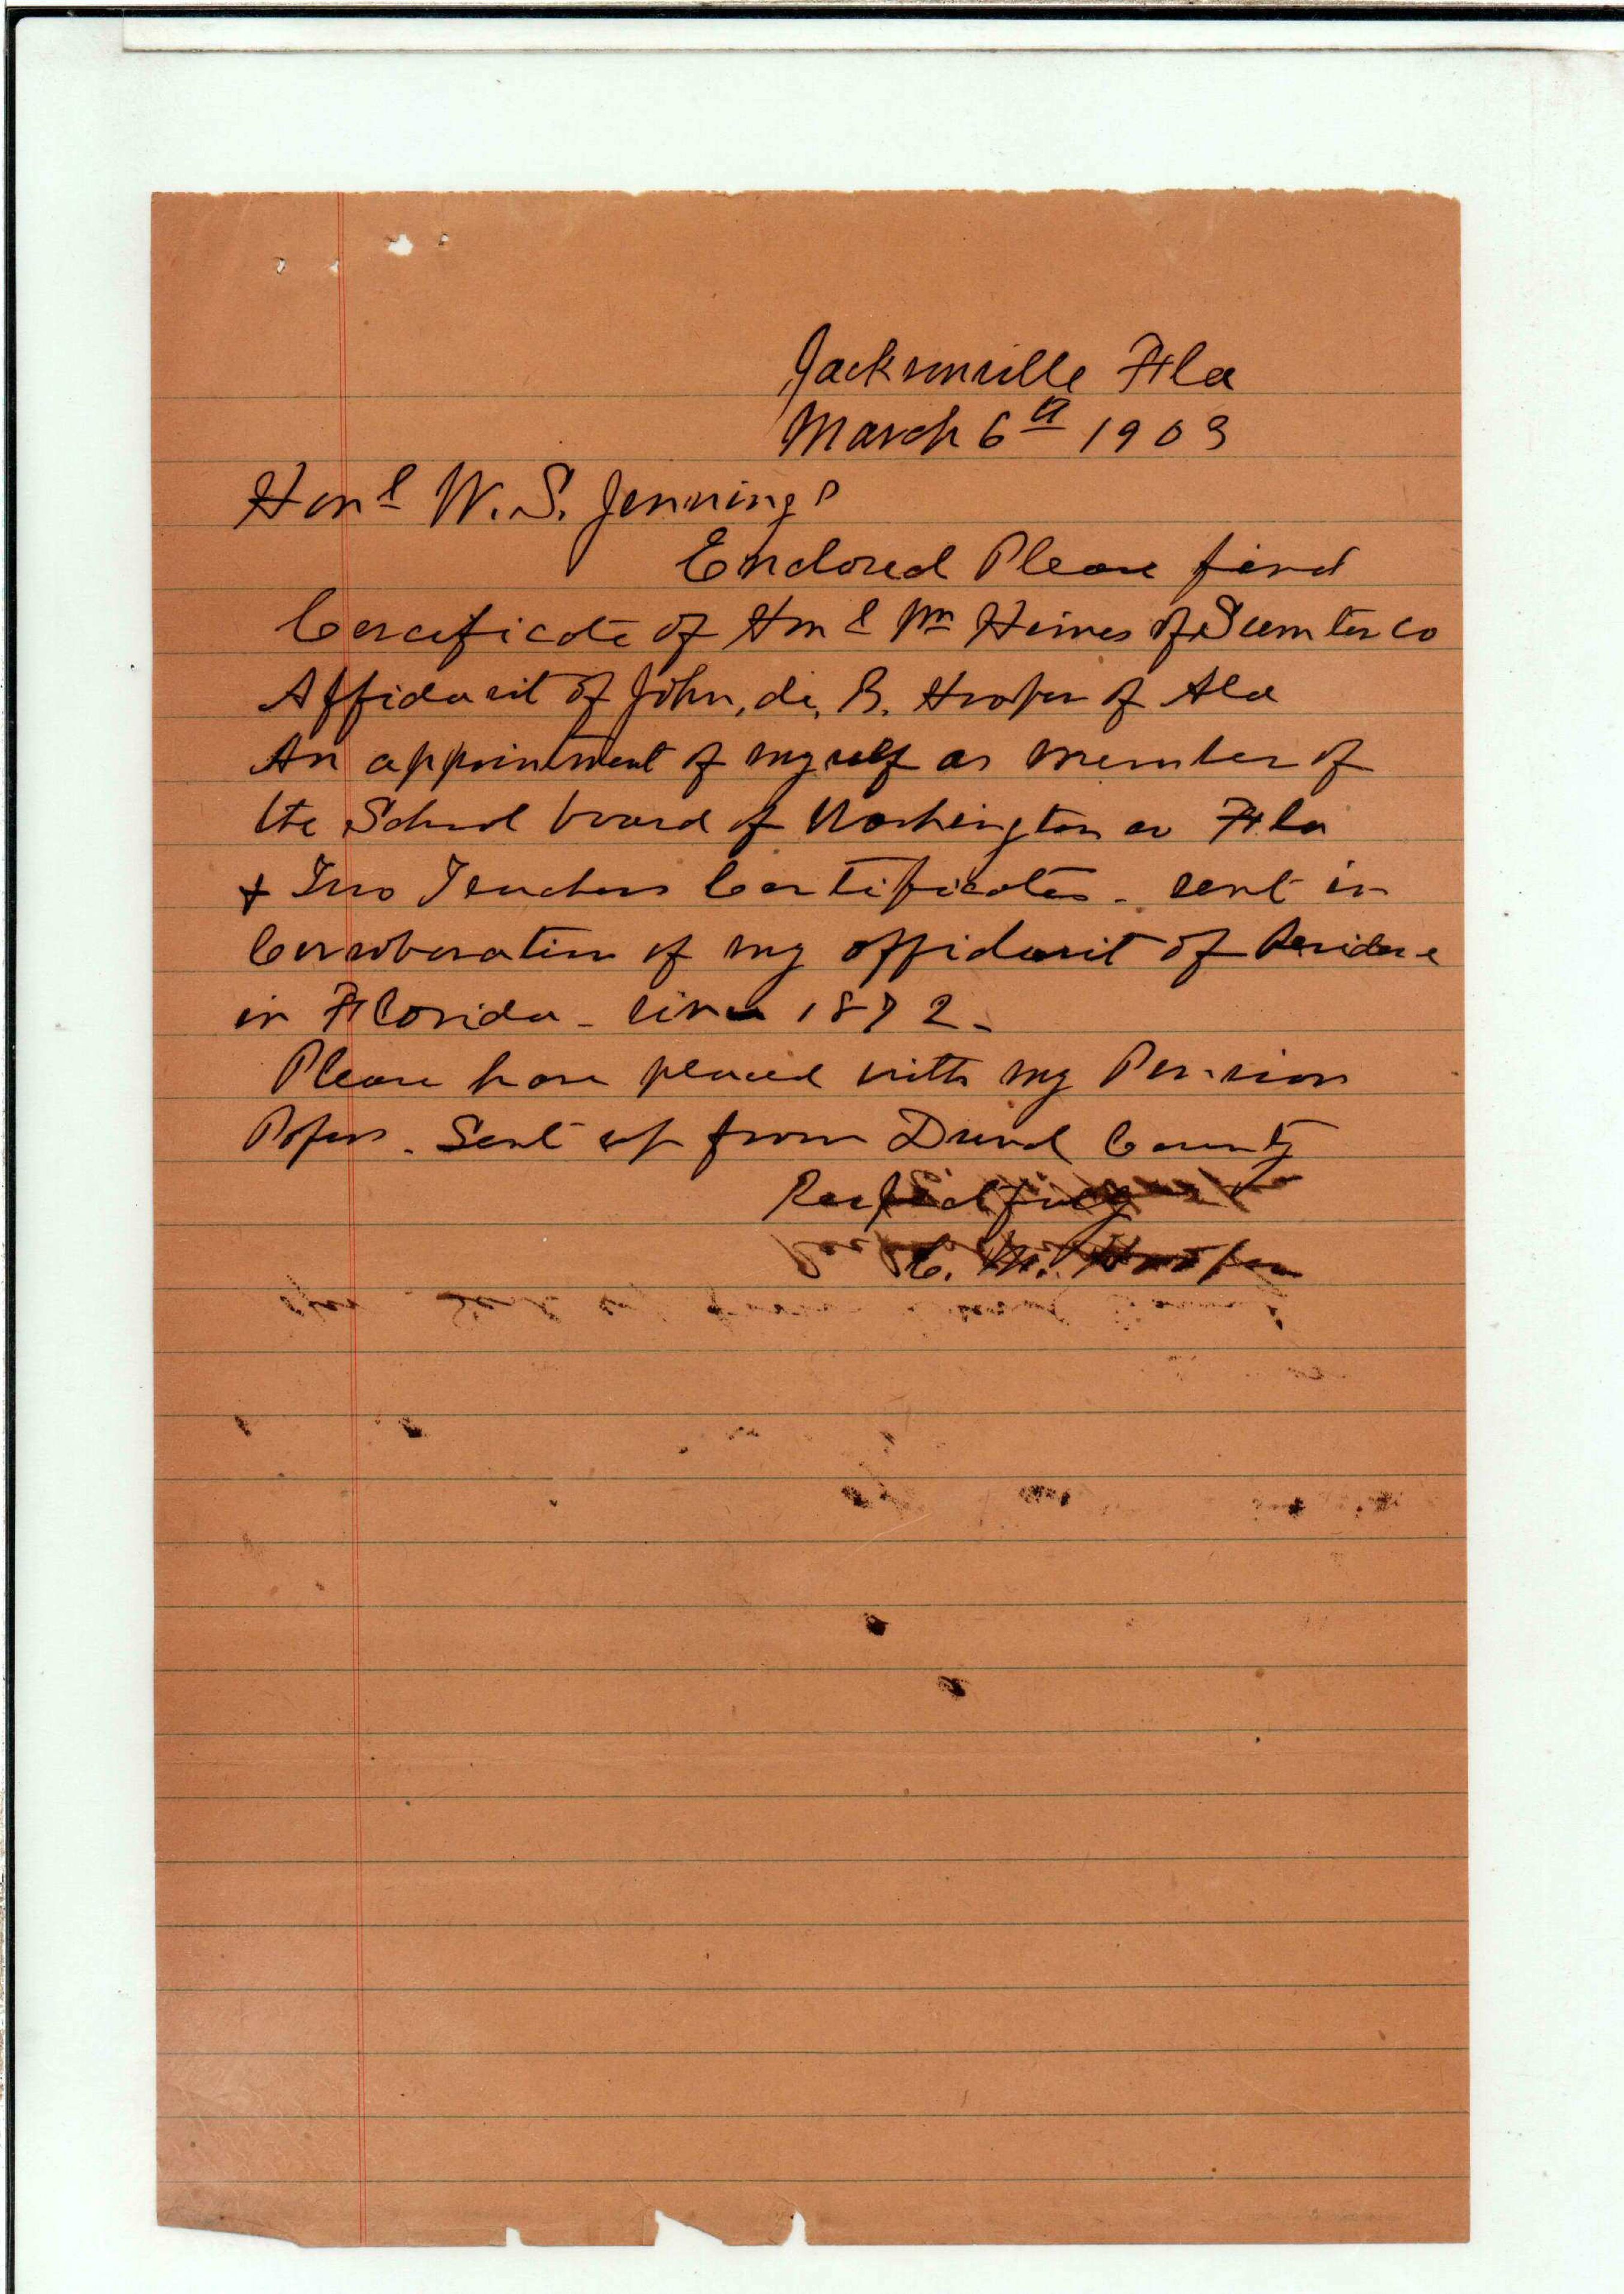 Jacksonville Fla
March 6th 1903
Honl W. S. Jennings
Enclosed Please find
Cercificate of Honl Wm Himes of Sumter co
Affidavit of John, de, B. Hooper of Ala
An appointment of myself as member of
the School board of Washington co Fla
& Two Teachers Certificates - sent in
Corroboration of my affidavit of Residence
in Florida - since 1872 -
Please have placed with my Pension
Papers. Sent up from Duval County
Respectfully
C. M. Hooper